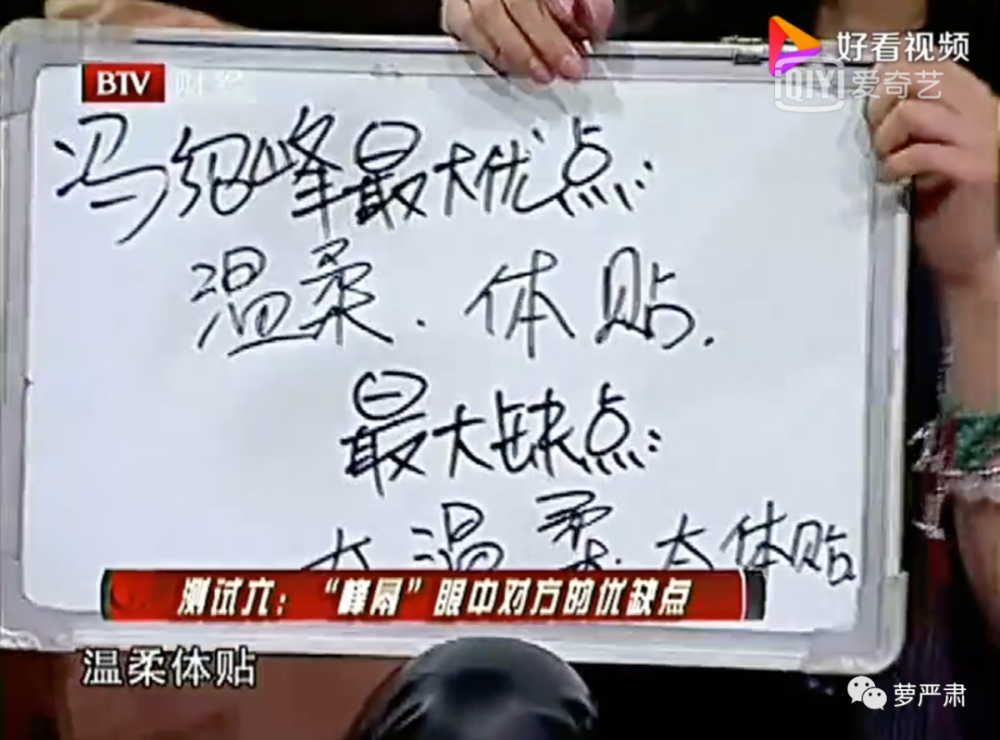 好看视频
BTV 财经
iQIYI 爱奇艺
冯绍峰最大优点:
温柔.体贴.
最大缺点:
太温柔.太体贴
测试六:“峰幂”眼中对方的优缺点
温柔体贴
萝严肃